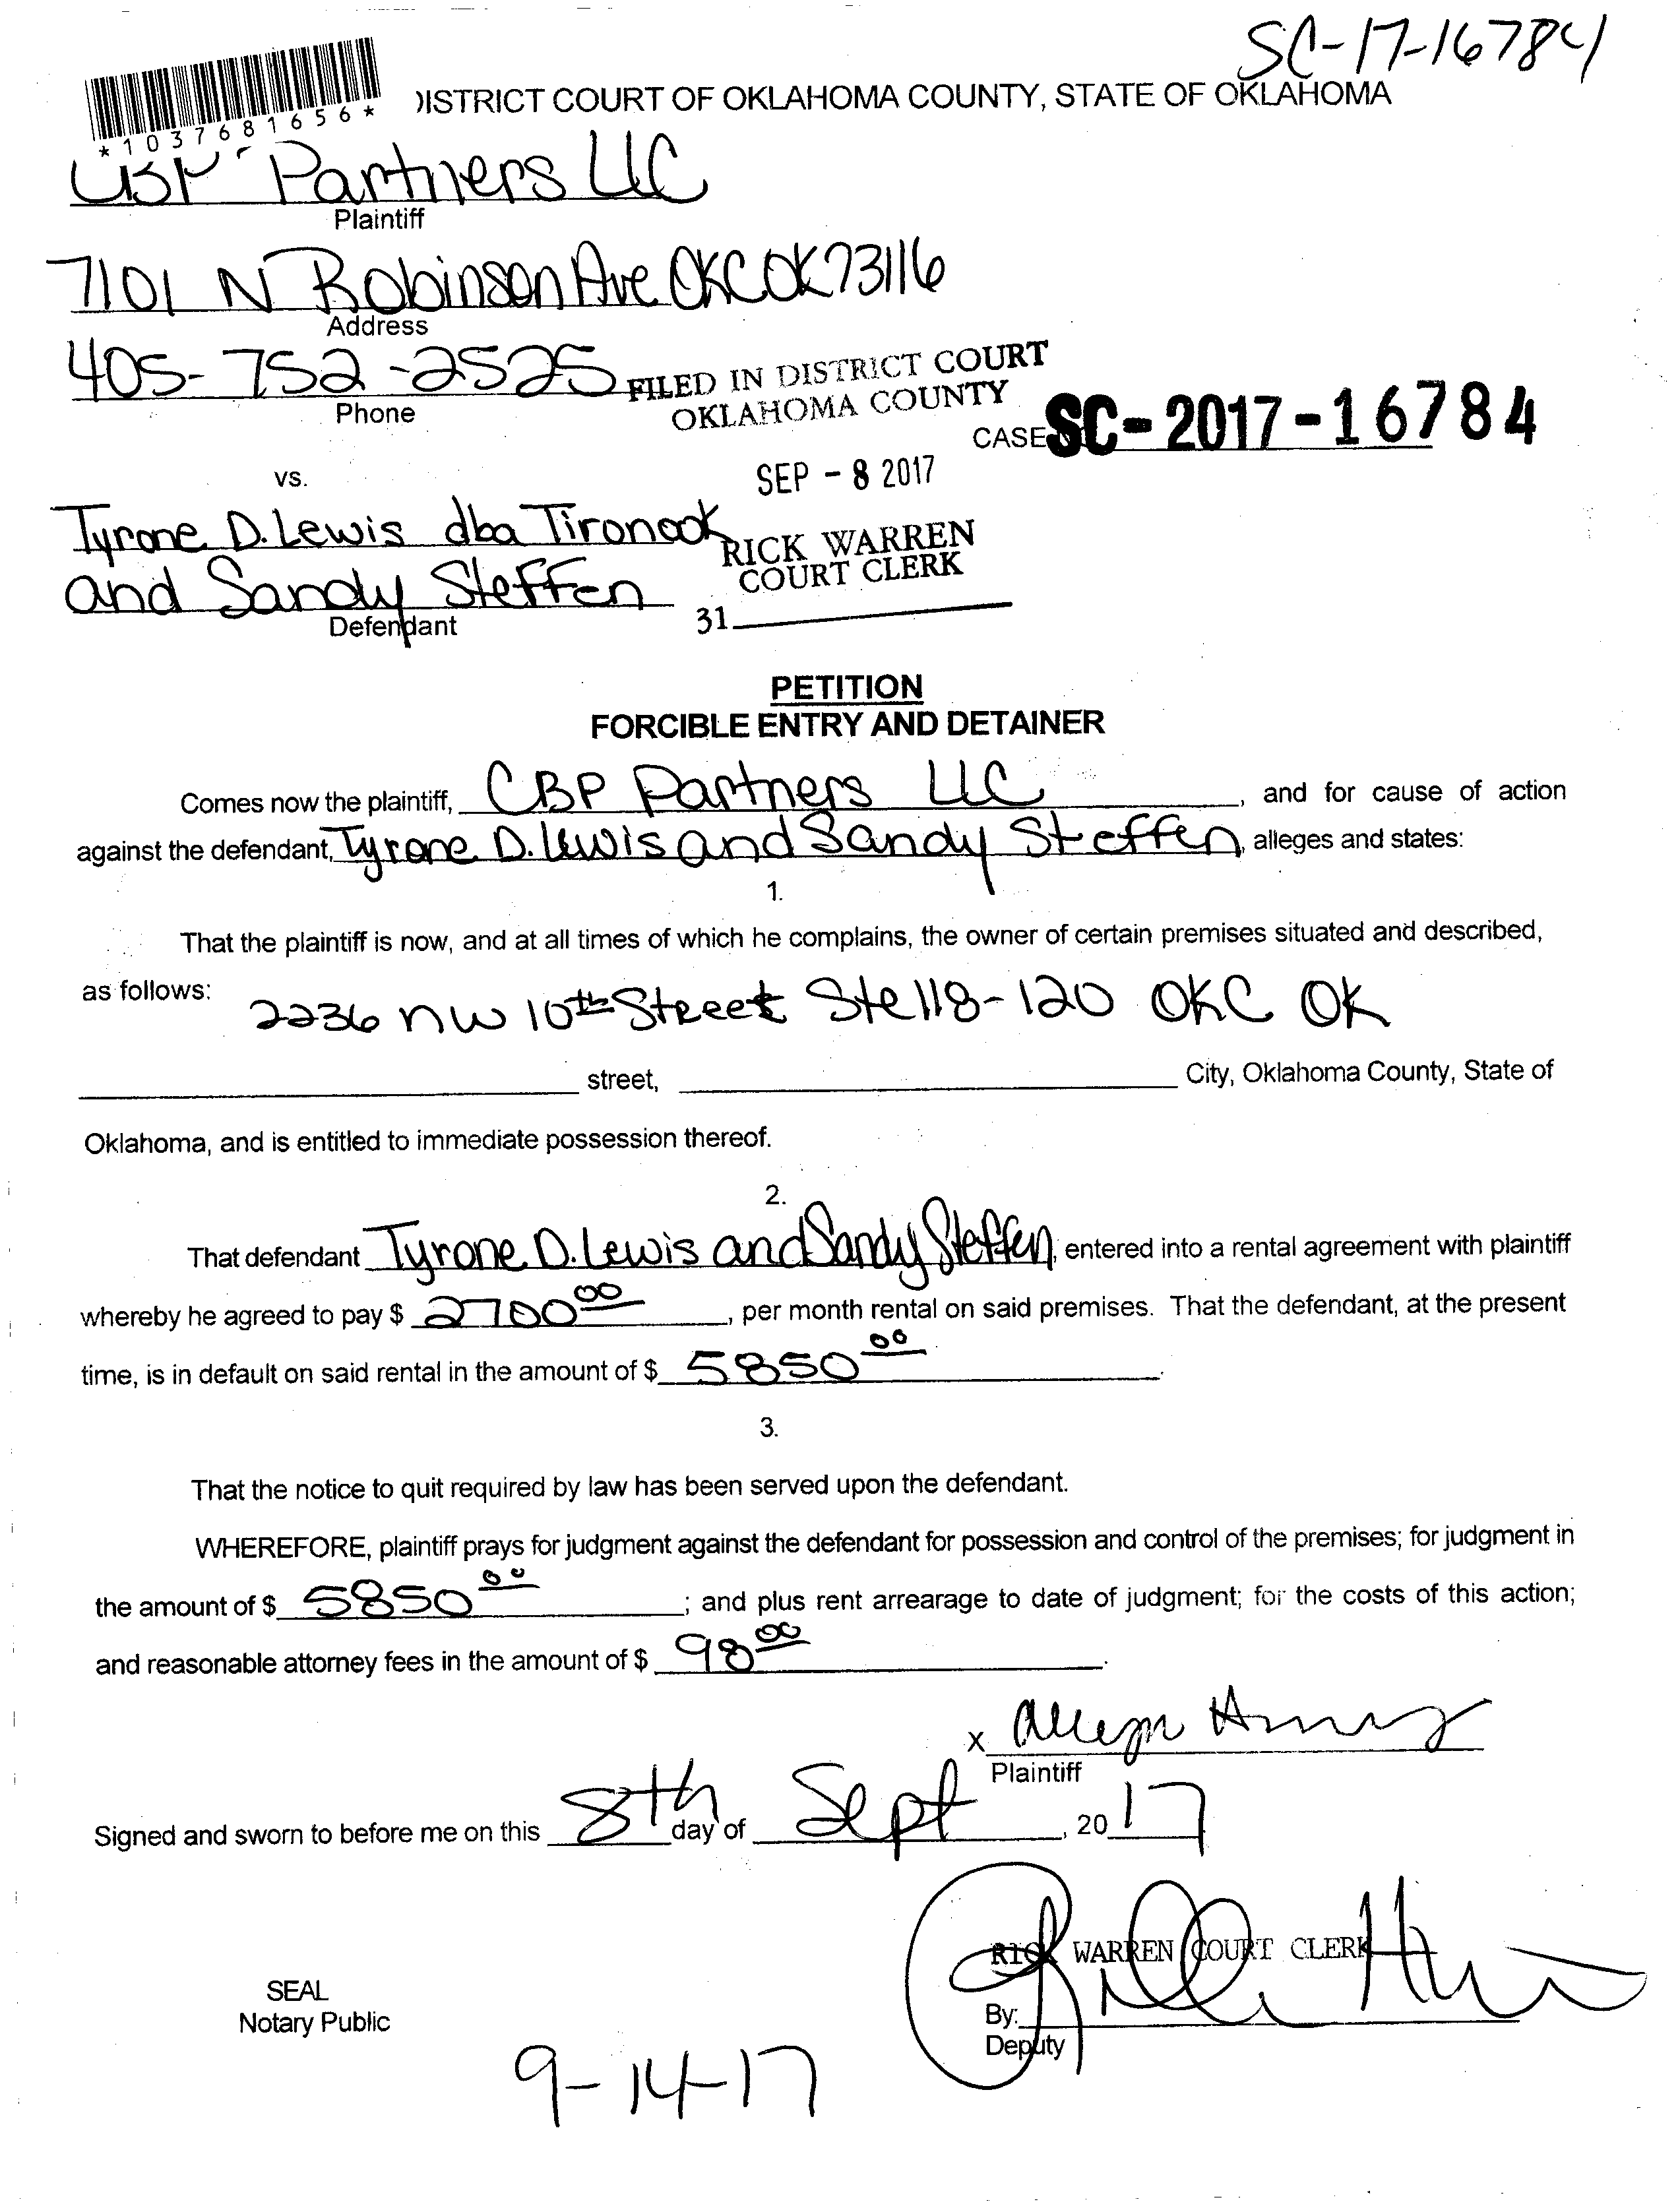 SC-17-16784
DISTRICT COURT OF OKLAHOMA COUNTY, STATE OF OKLAHOMA
*1037681656*
CBP Partners LLC
Plaintiff
7101 N Robinson Ave OKC OK 73116
Address
405-752-2525
Phone
FILED IN DISTRICT COURT
OKLAHOMA COUNTY
CASE SC-2017-16784
vs.
SEP - 8 2017
Tyrone D. Lewis dba Tironook
and Sandy Steffen
Defendant
RICK WARREN
COURT CLERK
31
PETITION
FORCIBLE ENTRY AND DETAINER
Comes now the plaintiff, CBP Partners LLC, and for cause of action
against the defendant, Tyrone D. Lewis and Sandy Steffen, alleges and states:
1.
That the plaintiff is now, and at all times of which he complains, the owner of certain premises situated and described,
as follows: 2236 NW 10th Street Ste 118-120 OKC OK
street, City, Oklahoma County, State of
Oklahoma, and is entitled to immediate possession thereof.
2.
That defendant Tyrone D. Lewis and Sandy Steffen, entered into a rental agreement with plaintiff
whereby he agreed to pay $ 2700 00, per month rental on said premises. That the defendant, at the present
time, is in default on said rental in the amount of $ 5850 00.
3.
That the notice to quit required by law has been served upon the defendant.
WHEREFORE, plaintiff prays for judgment against the defendant for possession and control of the premises; for judgment in
the amount of $ 5850 00; and plus rent arrearage to date of judgment; for the costs of this action;
and reasonable attorney fees in the amount of $ 98 00.
x
Plaintiff
Signed and sworn to before me on this 8th day of Sept, 20 17
RICK WARREN COURT CLERK
SEAL
Notary Public
By:
Deputy
9-14-17